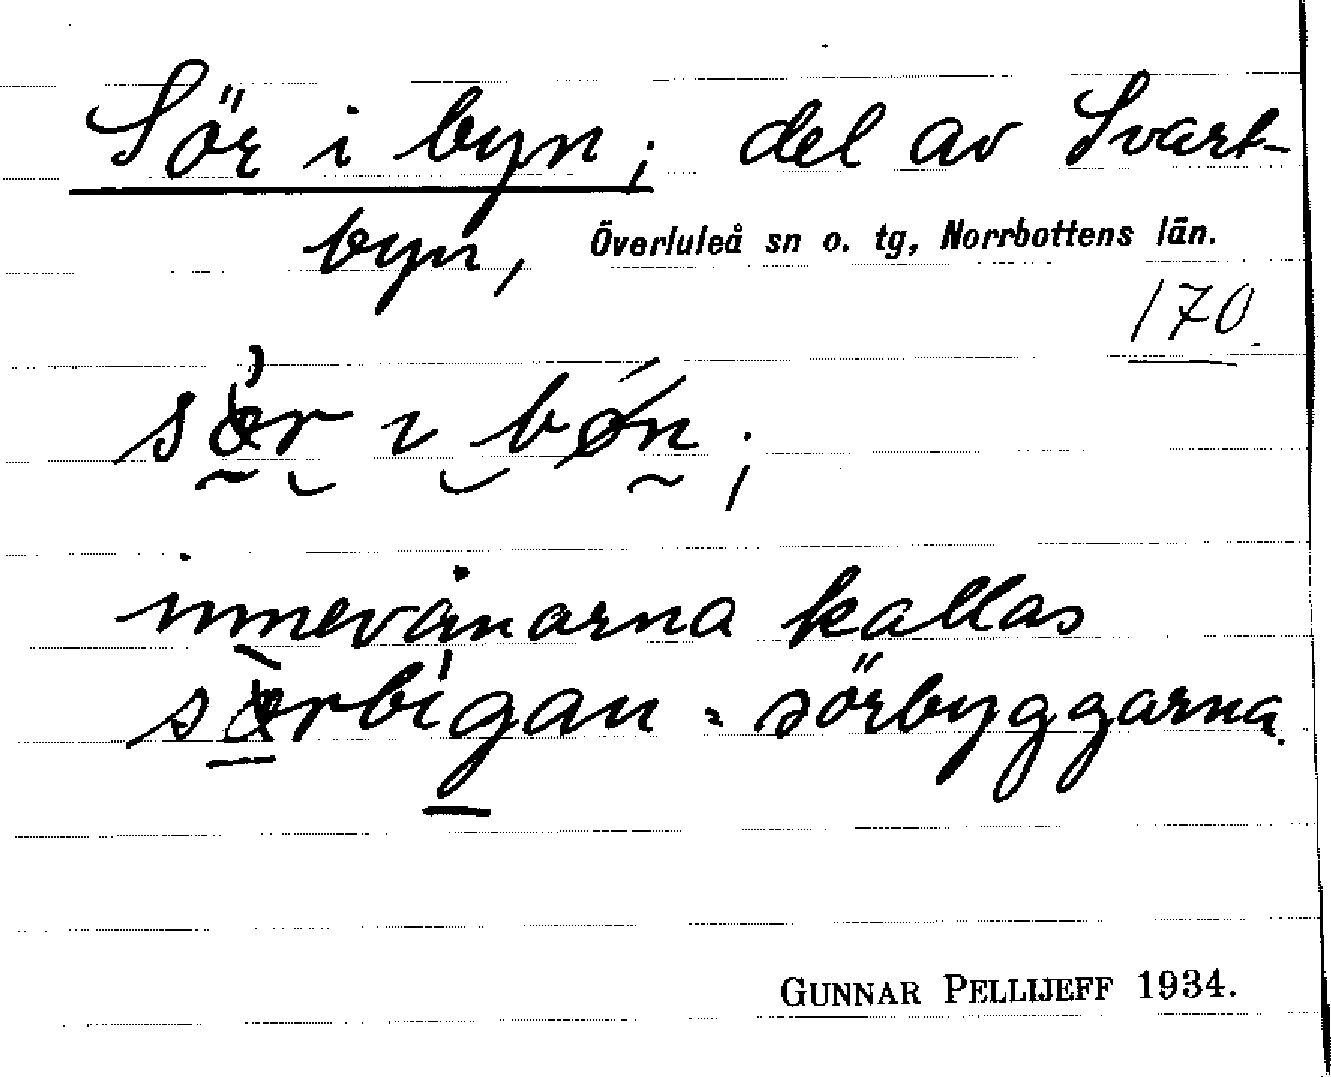 Sör i byn; del av Svart-
byn, Överluleå sn o. tg, Norrbottens län.
170.
sör ı bǿn;
innevånarna kallas
sörbigan = sörbyggarna.
GUNNAR PELLIJEFF 1934.